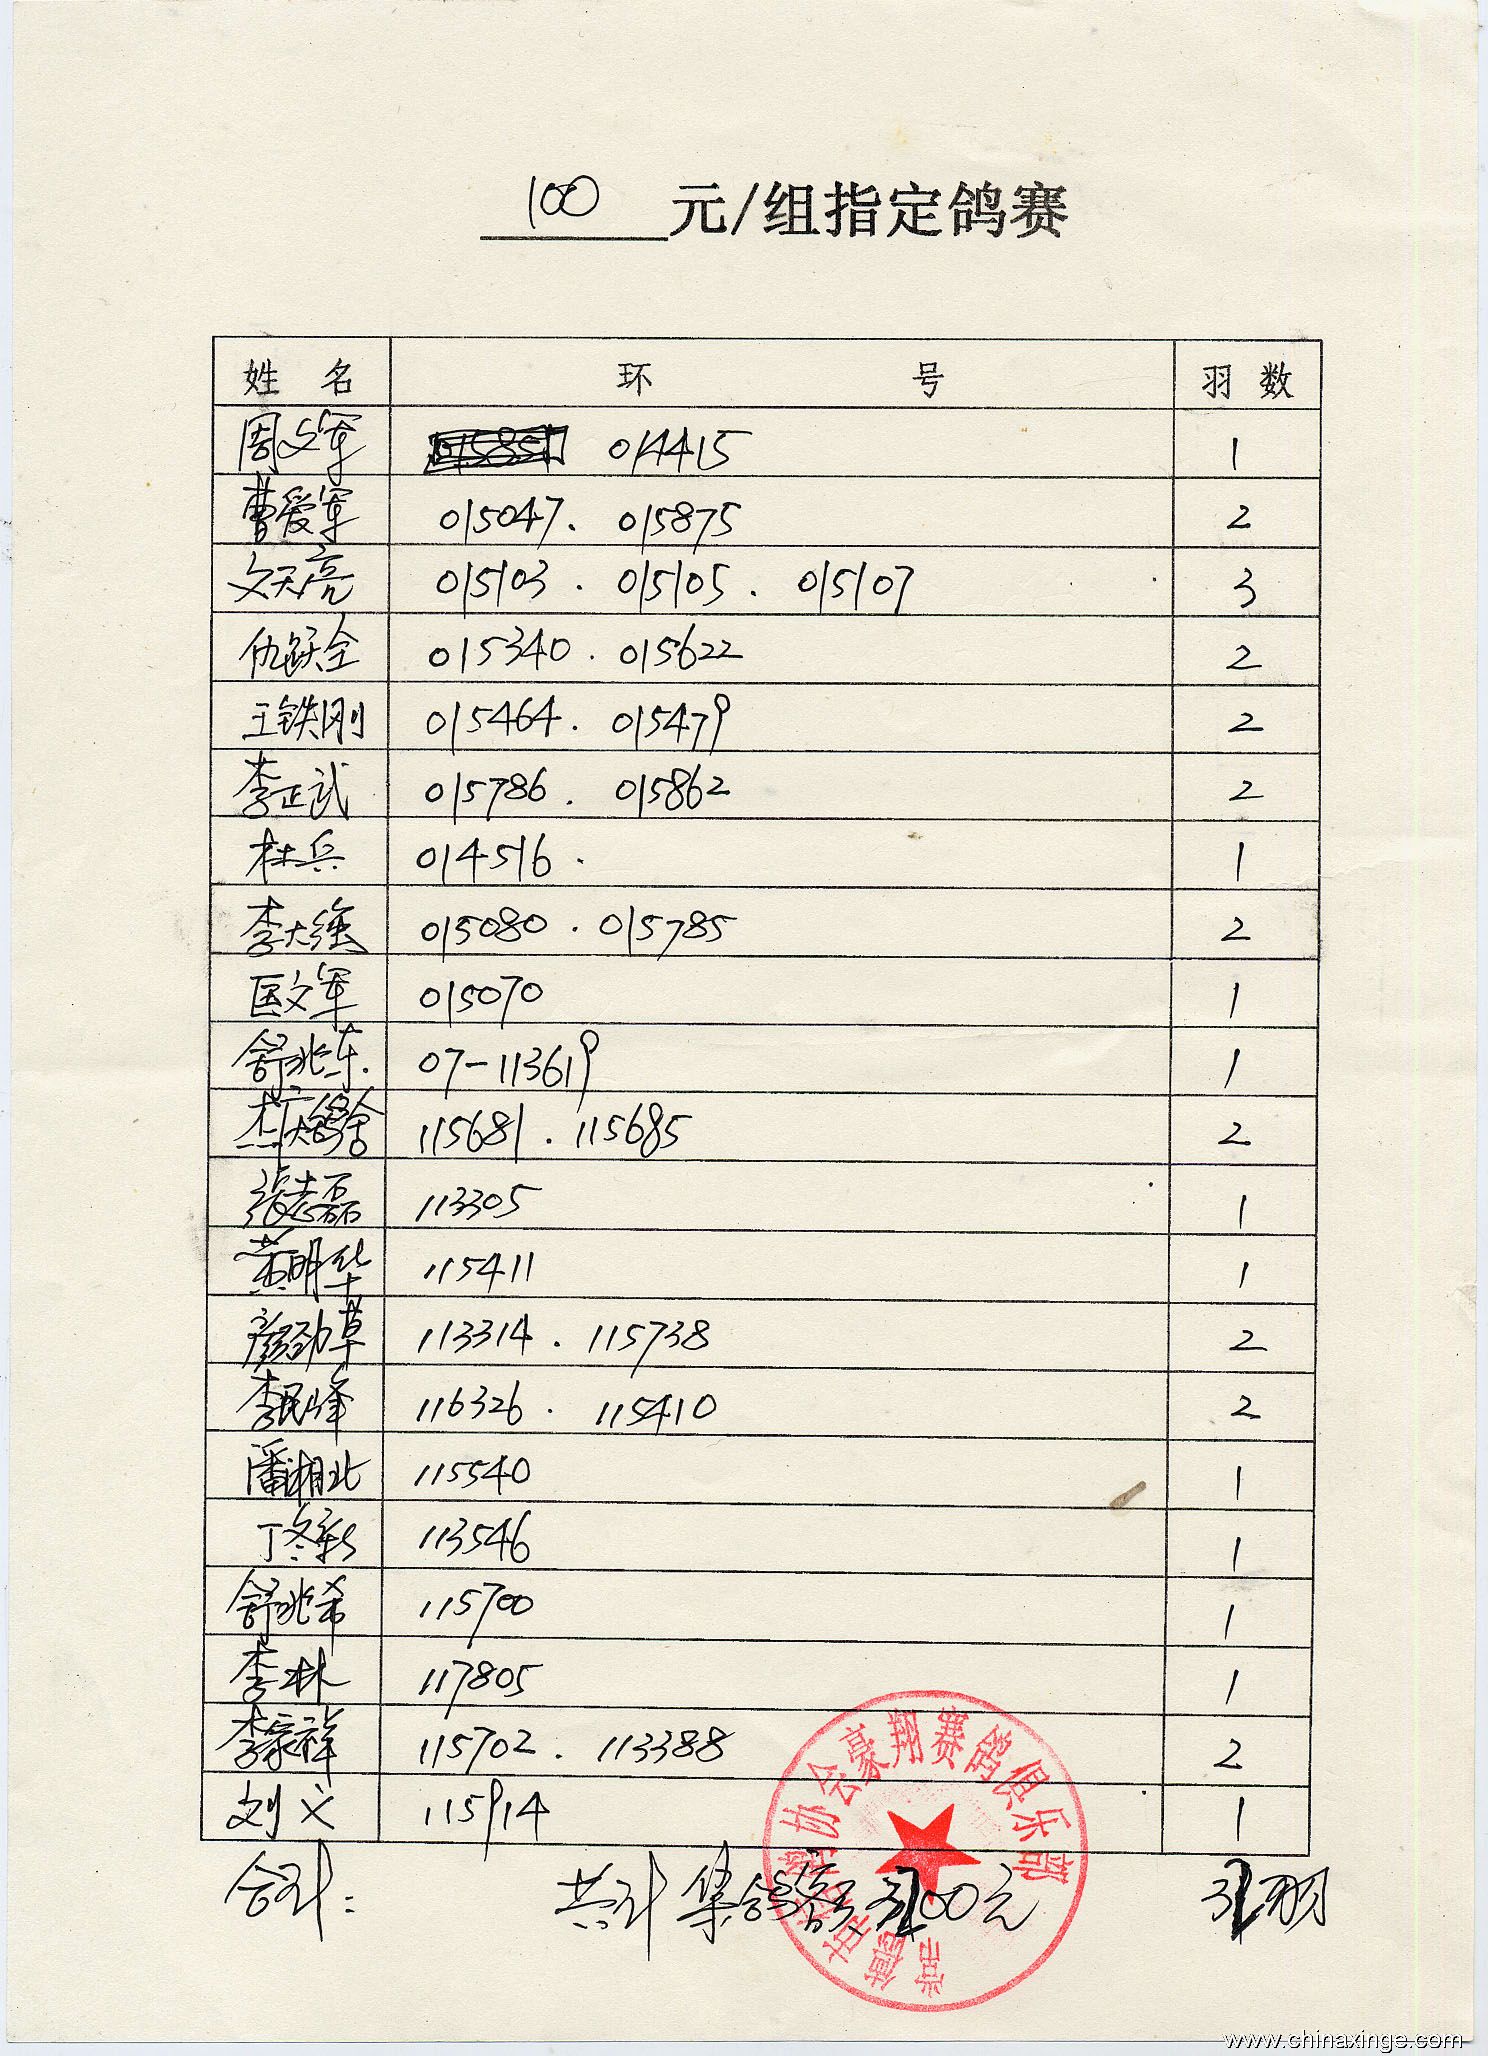 100 元/组指定鸽赛
姓 名 环 号 羽 数
周文军 014415 1
曹爱军 015047. 015875 2
文天亮 015103 . 015105 . 015107 3
仇跃全 015340 . 015622 2
王铁刚 015464. 015479 2
李正武 015786 . 015862 2
杜兵 014516 . 1
李大强 015080 . 015785 2
匡文军 015070 1
舒兆东. 07-113619 1
鸽舍 115681 . 115685 2
张志磊 113305 1
黄明华 115411 1
彦劲草 113314 . 115738 2
李民峰 116326 . 115410 2
潘湘北 115540 1
丁冬新 113546 1
舒兆希 115700 1
李林 117805 1
李家祥 115702 . 113388 2
刘义 115914 1
合计: 共计集鸽 00元 31羽
常德市信鸽协会豪翔赛鸽俱乐部
www.chinaxinge.com